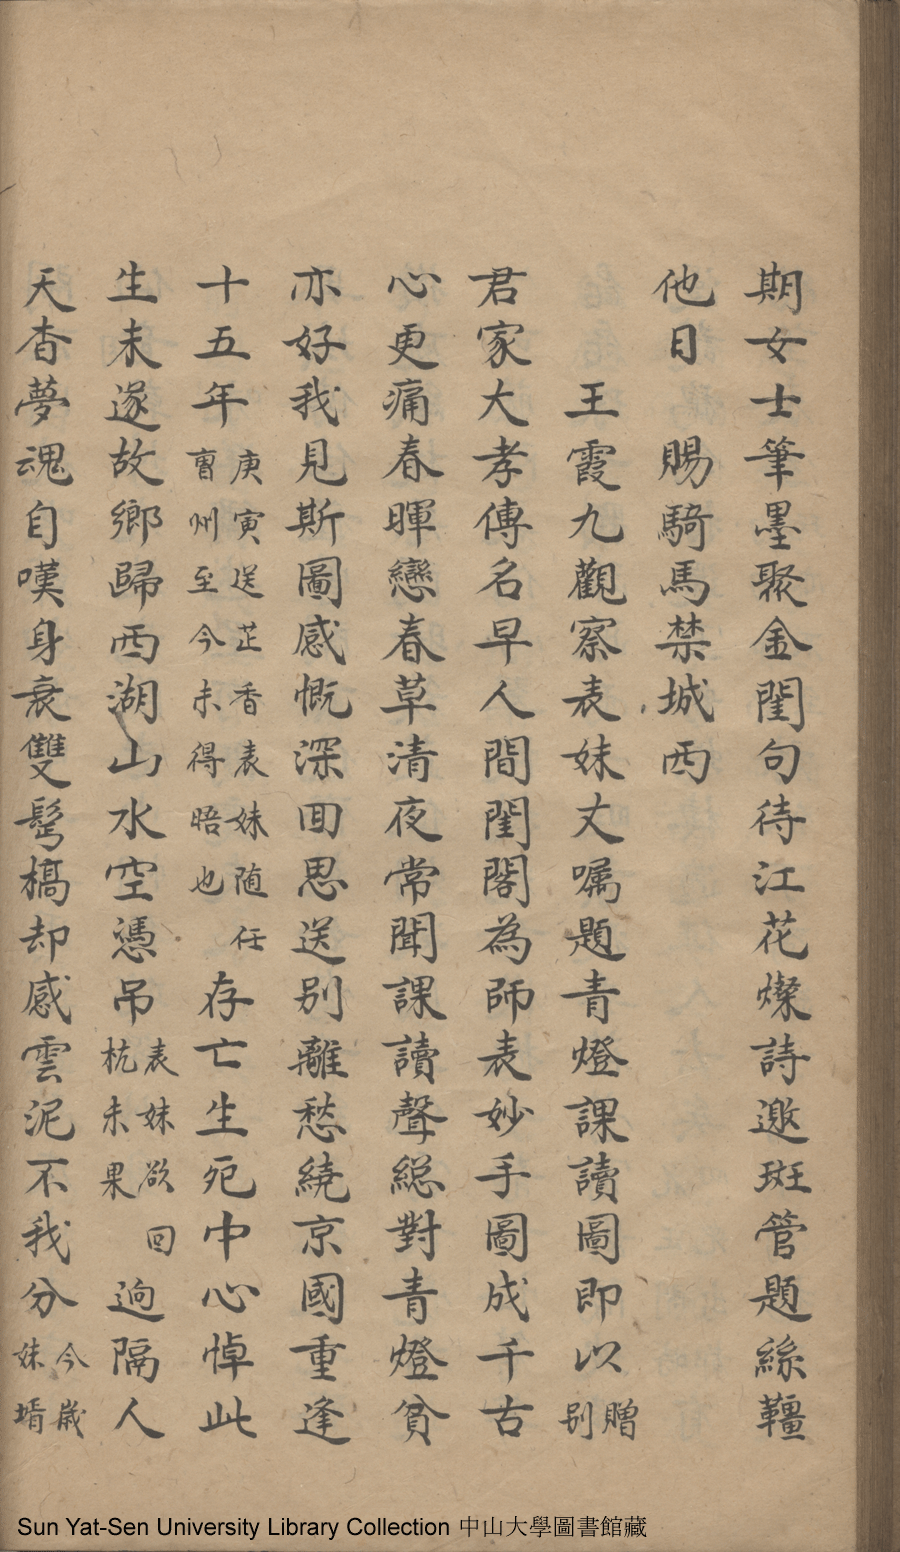 期女士筆墨聚金閨句待江花燦詩邀班管題絲韁
他日　賜騎馬禁城西
王霞九觀察表妹丈囑題青燈課讀圖即以贈别
君家大孝傳名早人間閨閣為師表妙手圖成千古
心更痛春暉戀春草清夜常聞課讀聲總對青燈貧
亦好我見斯圖感慨深回思送别離愁繞京國重逢
十五年庚寅送芷香表妹随任曹州至今未得晤也存亡生死中心悼此
生未遂故鄉歸西湖山水空憑吊表妹欲回杭未果逈隔人
天杳夢魂自嘆身衰雙髩槁却感雲泥不我分今歲妹壻
Sun Yat-Sen University Library Collection 中山大學圖書館藏